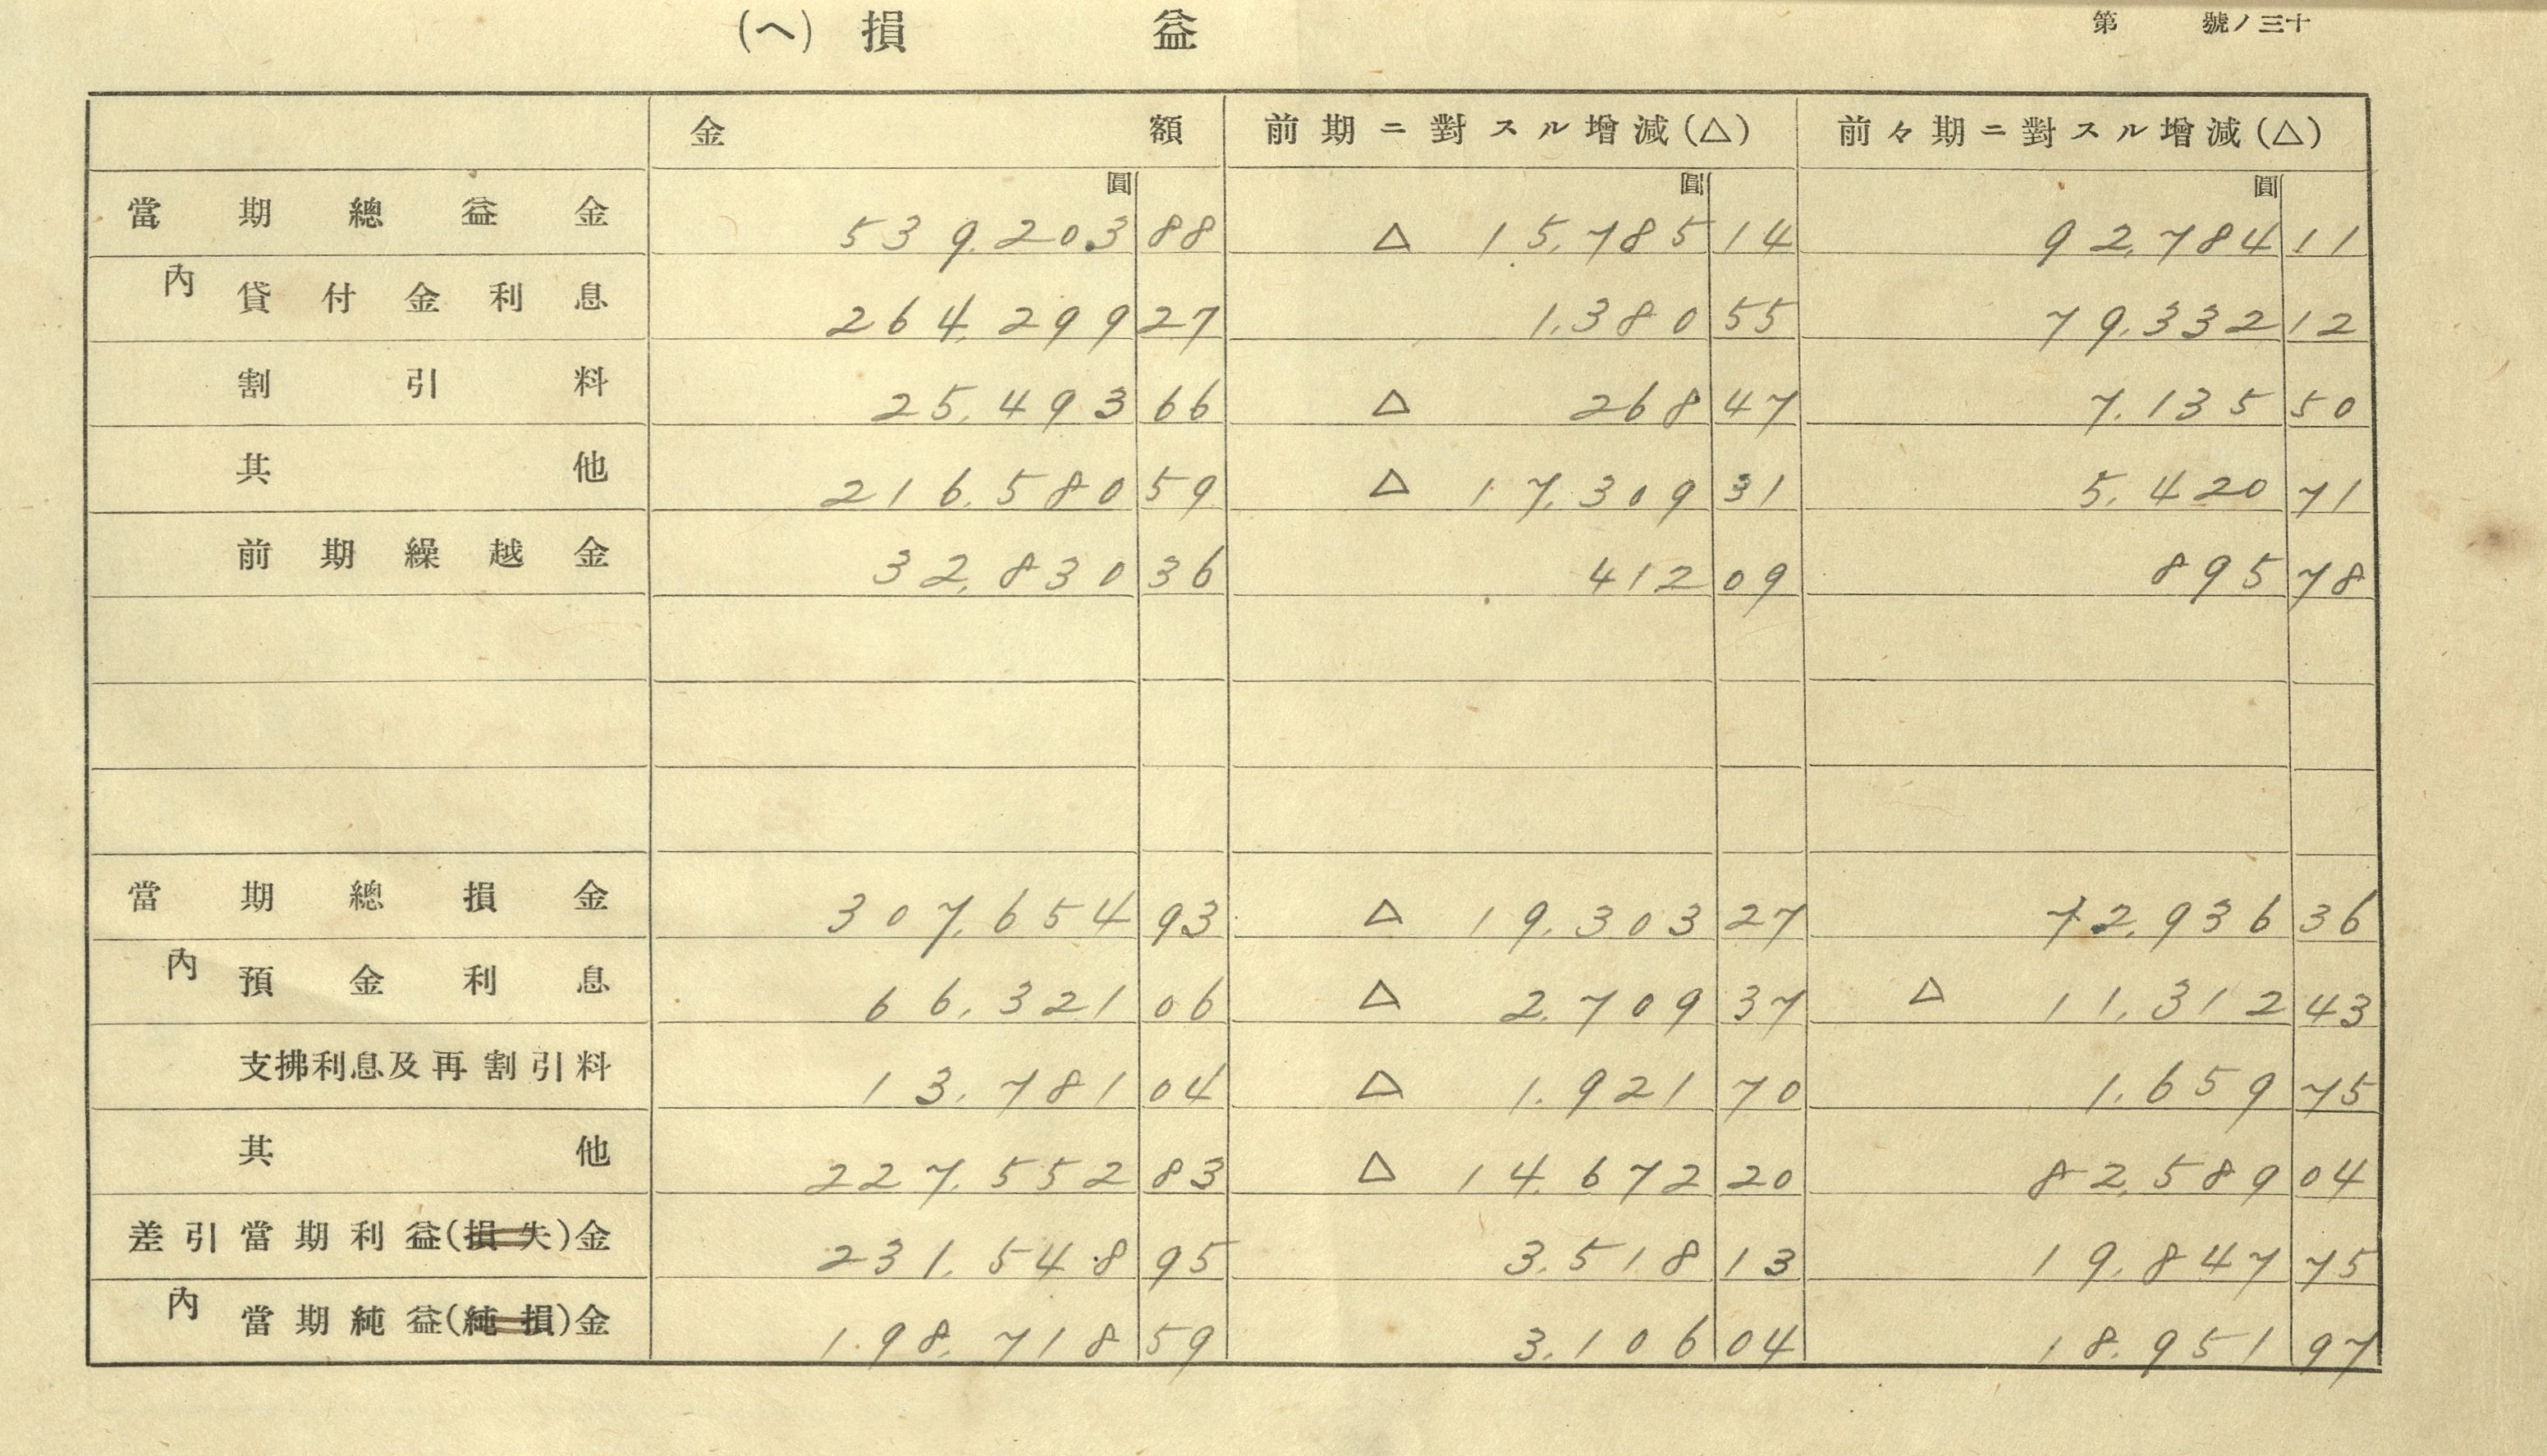 (ヘ) 損 益
第 號ノ三十
金 額 前期ニ對スル增減(△) 前々期ニ對スル增減(△)
圓 圓 圓
當期總益金 539,203 88 △ 15,785 14 92,784 11
內 貸付金利息 264,299 27 1,380 55 79,332 12
割引料 25,493 66 △ 268 47 7,135 50
其他 216,580 59 △ 17,309 31 5,420 71
前期繰越金 32,830 36 412 09 895 78
當期總損金 307,654 93 △ 19,303 27 72,936 36
內 預金利息 66,321 06 △ 2,709 37 △ 11,312 43
支拂利息及再割引料 13,781 04 △ 1,921 70 1,659 75
其他 227,552 83 △ 14,672 20 82,589 04
差引當期利益(損失)金 231,548 95 3,518 13 19,847 75
內 當期純益(純損)金 198,718 59 3,106 04 18,951 97